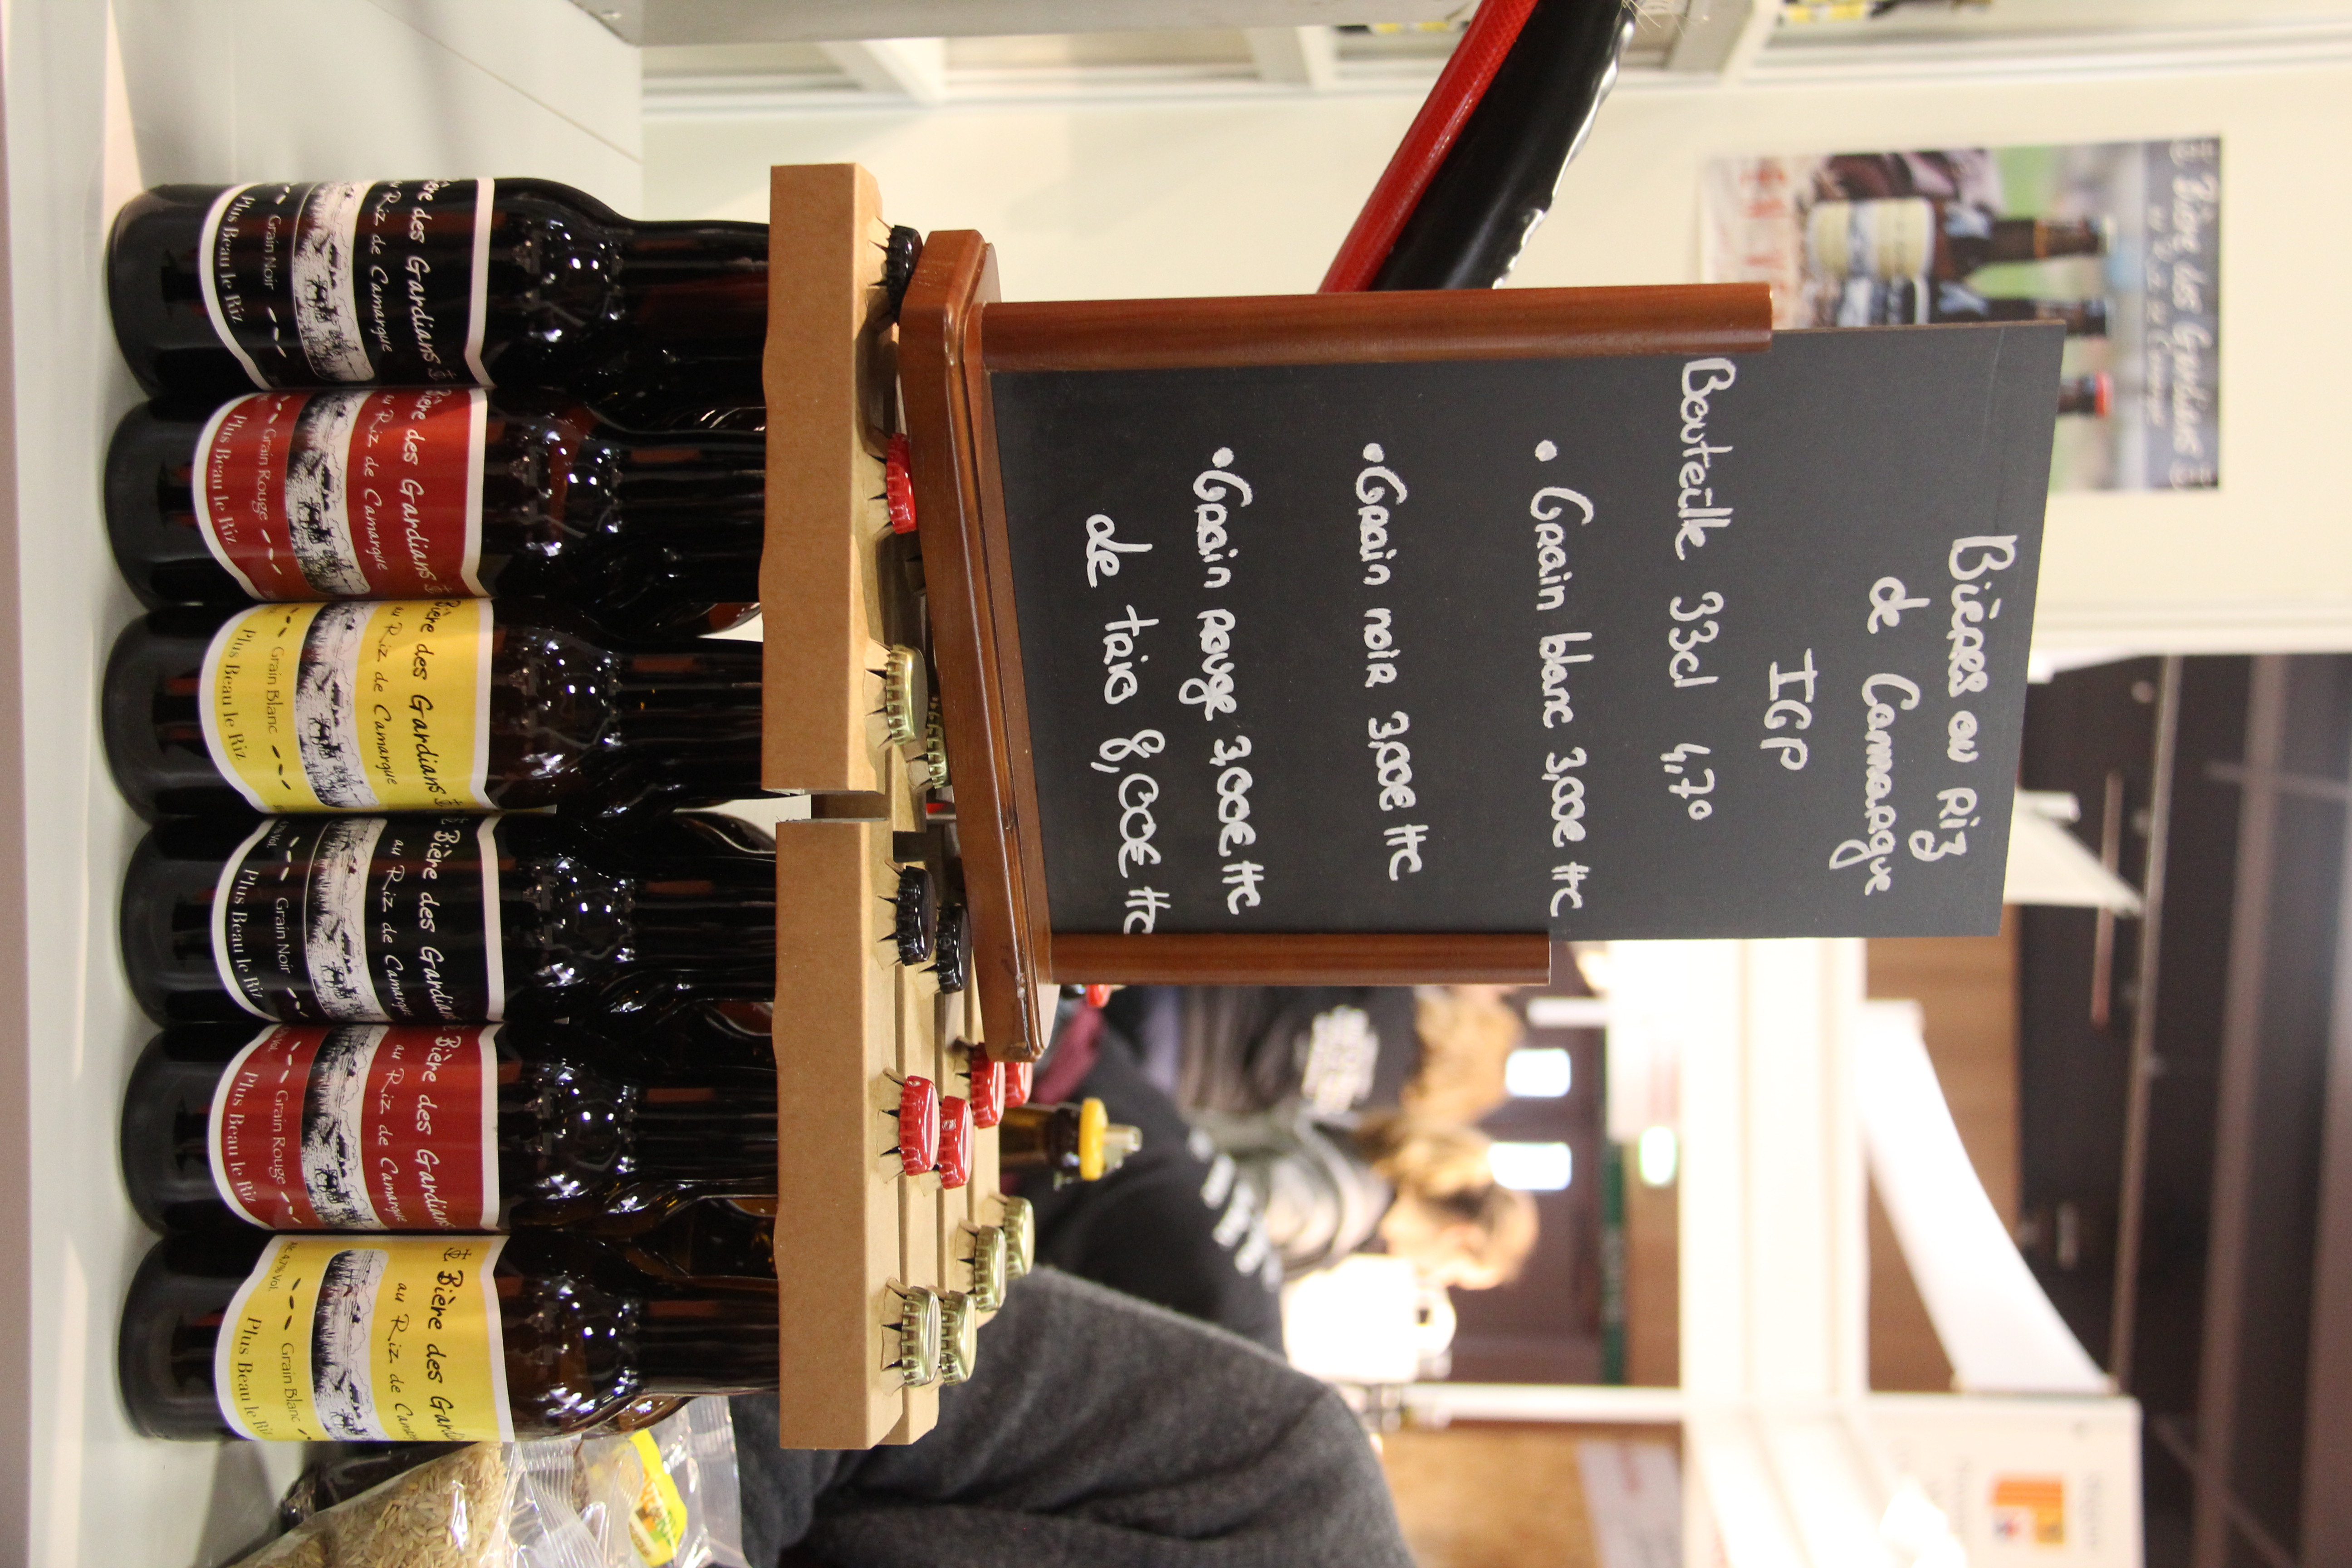 Bières au riz
de Camargue
IGP
Bouteille 33cl 4,7°
• Grain blanc 3,00€ ttc
• Grain noir 3,00€ ttc
• Grain rouge 3,00€ ttc
de trio 8,00€ ttc
Bière des Gardians
au Riz de Camargue
Bière des Gardians
au Riz de Camargue
Grain Noir
Plus Beau le Riz
Bière des Gardians
au Riz de Camargue
Grain Rouge
Plus Beau le Riz
Bière des Gardians
au Riz de Camargue
Grain Blanc
Plus Beau le Riz
Bière des Gardians
au Riz de Camargue
Grain Noir
Plus Beau le Riz
Bière des Gardians
au Riz de Camargue
Grain Rouge
Plus Beau le Riz
Bière des Gard
au Riz de Camar
4,7% Vol.
Grain Blanc
Plus Beau le Riz